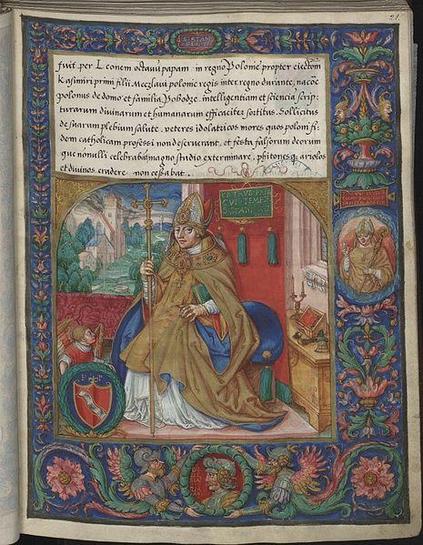 21
fuit per Leonem octavũ papam. in regno Polonie propter eiectõem
Kasimiri primi filii Meczslavi polonie regis interregno durante, nacõe
polonus de domo et familia Pobodze. intelligentiam et sciencia scrip-
turarum divinarum et humanarum efficaciter sortitus. Sollicitus
de suarum plebium salute. veteres idolatricos mores quos poloni fi-
dem catholicam professi non deseruerant, et festa falsorum deorum
que nonulli celebrabãt magno studio exterminare, phitonesq, ariolos
et divinos eradere non cessabat.